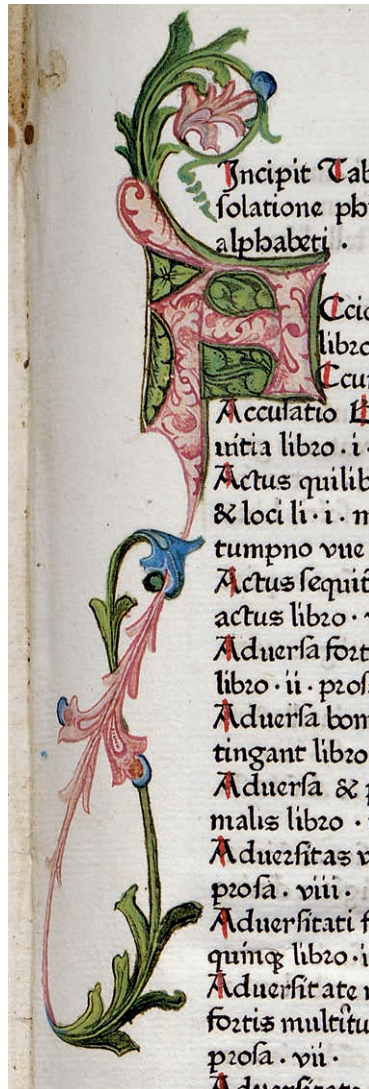 Incipit Tab
solatione ph
alphabeti .
A
Accusatio
uitia libro . i .
Actus quilib
& loci li . i . m
tumpno vue
Actus sequit
actus libro .
Aduersa fort
libro . ii . pros
Aduersa bon
tingant libro
Aduersa &
malis libro .
Aduersitas v
prosa . viii .
Aduersitati f
quinqꝫ libro . i
Aduersitate
fortis multitu
prosa . vii .